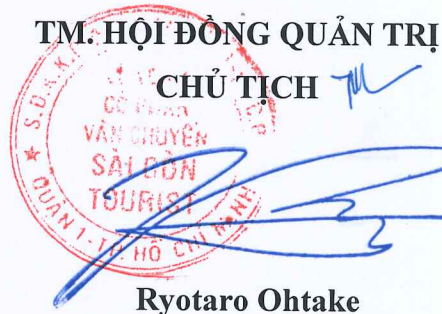 TM. HỘI ĐỒNG QUẢN TRỊ
CHỦ TỊCH
S.D.K.K.
CỔ PHẦN
VẬN CHUYỂN
SÀI GÒN
TOURIST
QUẬN 1 - TP HỒ CHÍ MINH
Ryotaro Ohtake